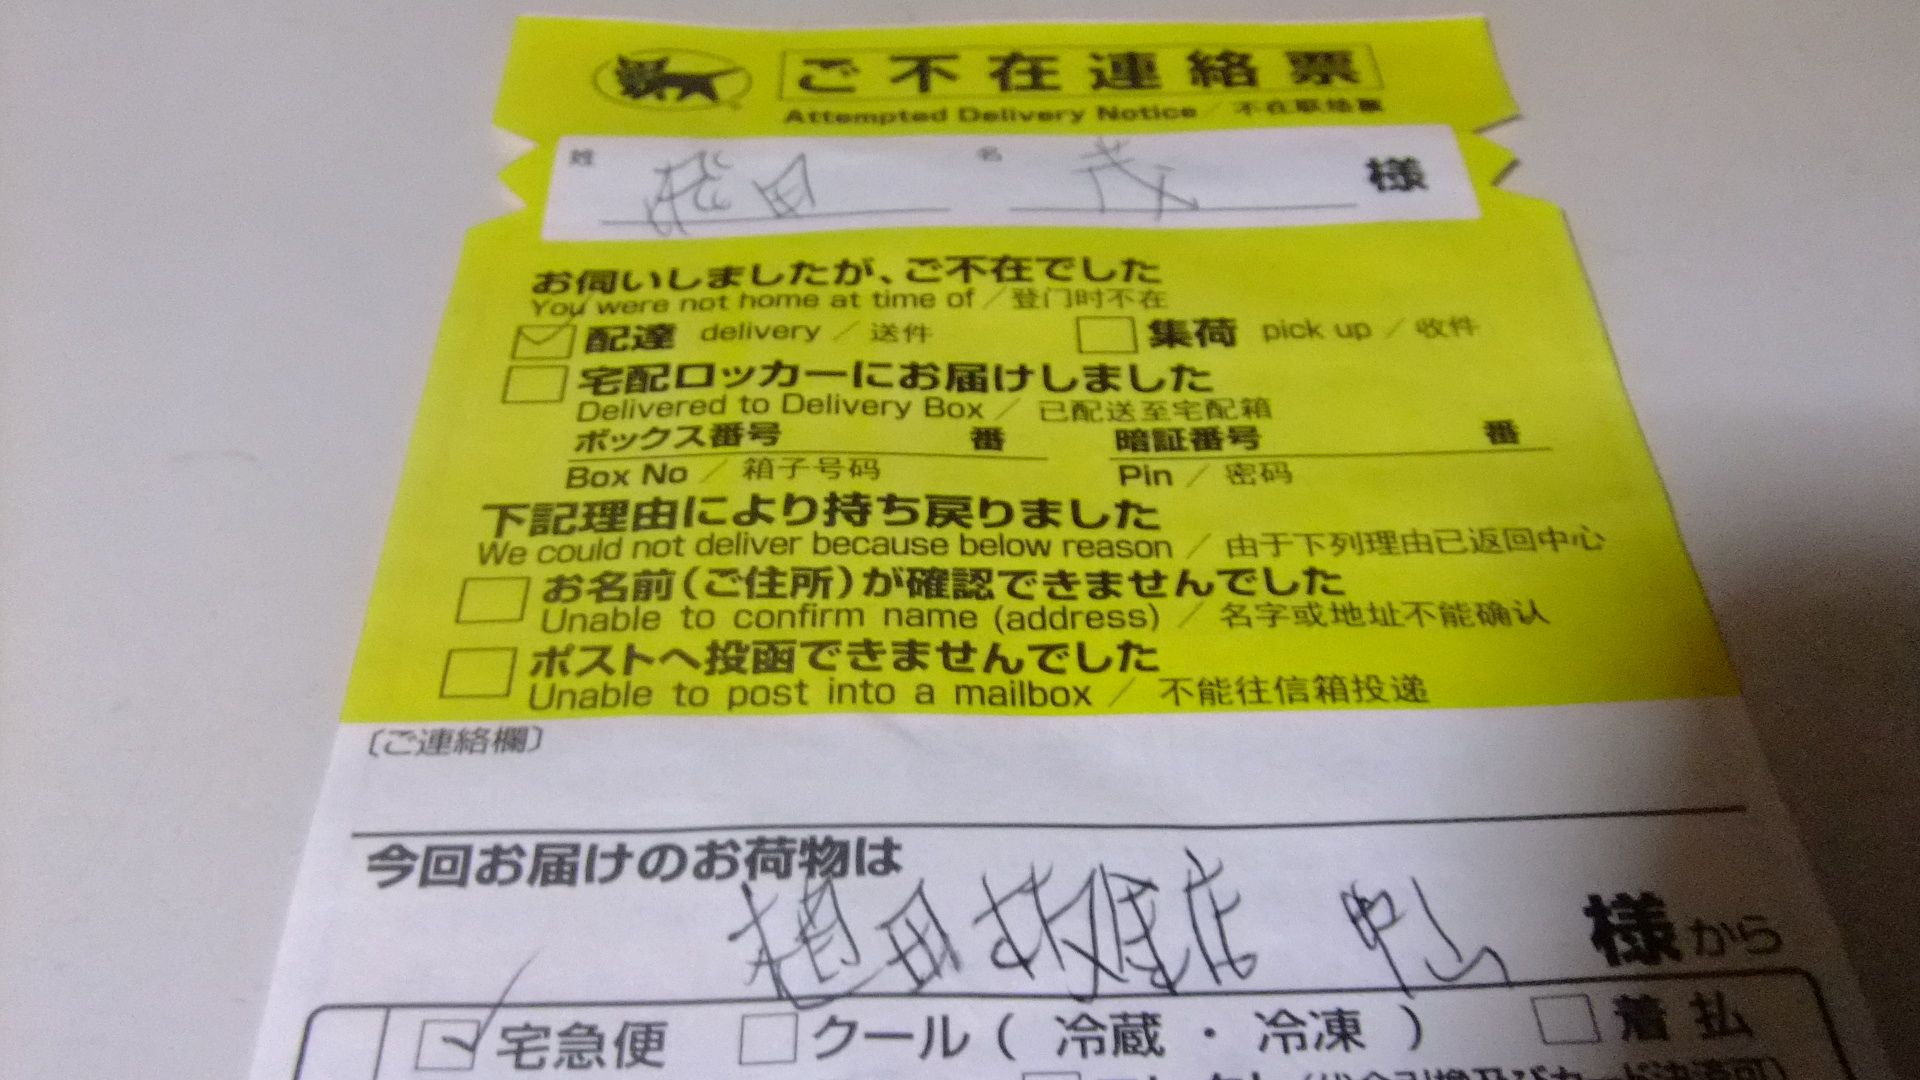 ご不在連絡票
Attempted Delivery Notice／不在联络票
姓 名 茂 様
お伺いしましたが、ご不在でした
You were not home at time of／登门时不在
配達 delivery／送件 集荷 pick up／收件
宅配ロッカーにお届けしました
Delivered to Delivery Box／已配送至宅配箱
ボックス番号 番 暗証番号 番
Box No／箱子号码 Pin／密码
下記理由により持ち戻りました
We could not deliver because below reason／由于下列理由已返回中心
お名前(ご住所)が確認できませんでした
Unable to confirm name (address)／名字或地址不能确认
ポストへ投函できませんでした
Unable to post into a mailbox／不能往信箱投递
〔ご連絡欄〕
今回お届けのお荷物は
様から
宅急便 クール(冷蔵・冷凍) 着払